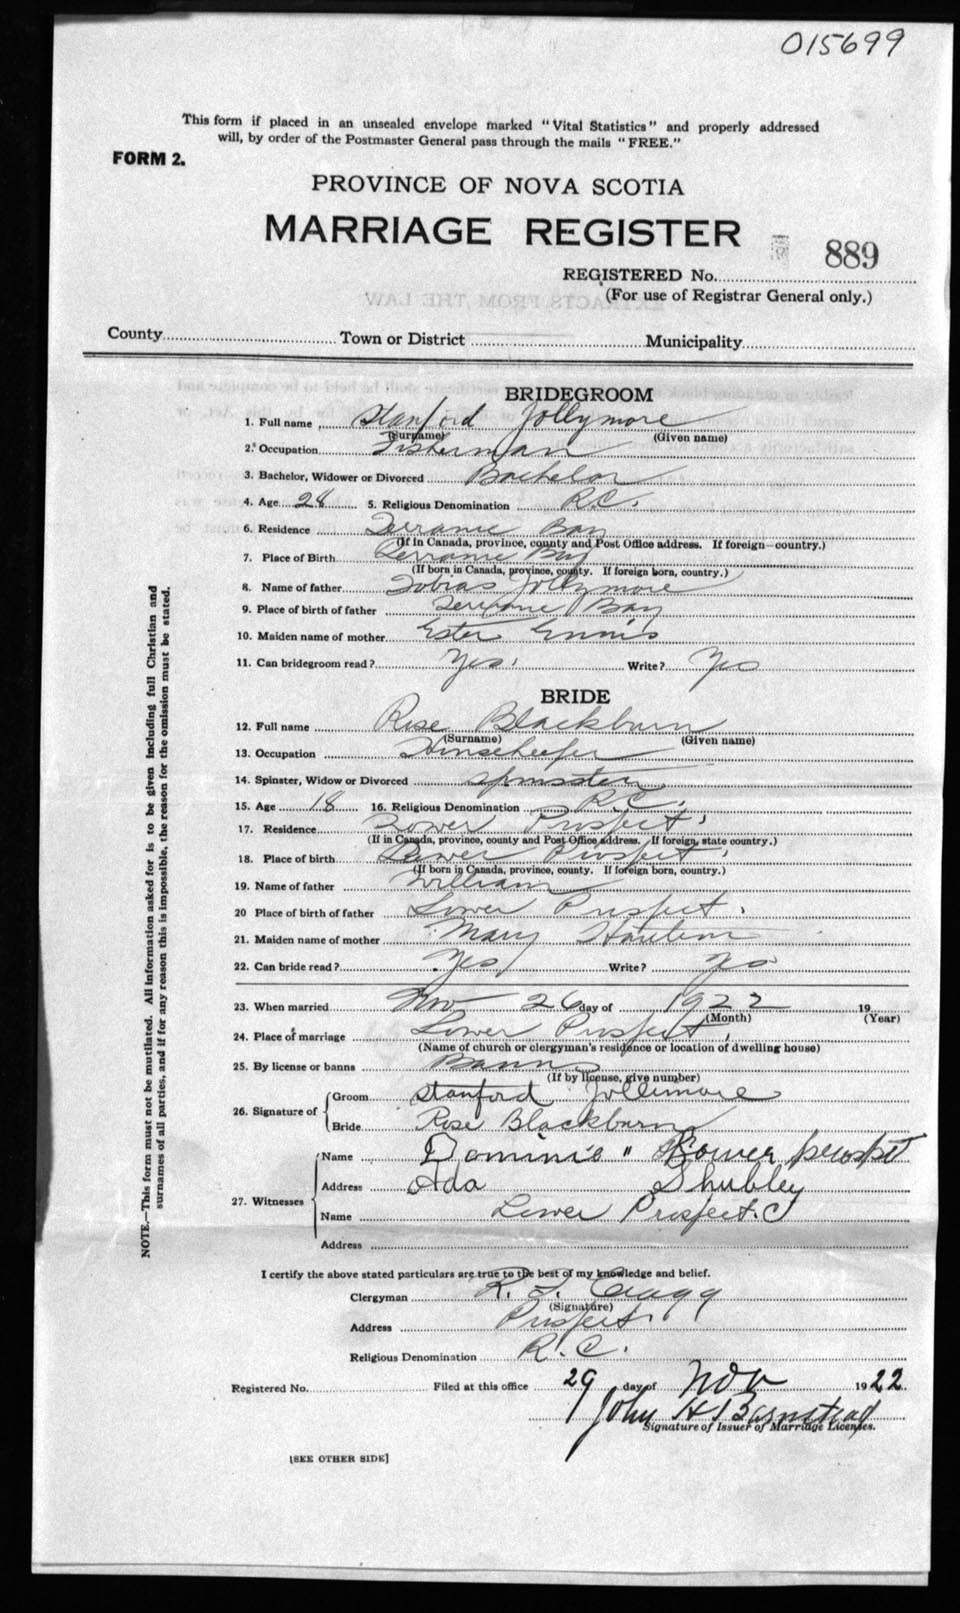 015699
This form if placed in an unsealed envelope marked "Vital Statistics" and properly addressed
will, by order of the Postmaster General pass through the mails "FREE."
FORM 2.
PROVINCE OF NOVA SCOTIA
MARRIAGE REGISTER
889
REGISTERED No.
(For use of Registrar General only.)
County Town or District Municipality
BRIDEGROOM
1. Full name Stanford Jollymore
(Surname) (Given name)
2. Occupation Fisherman
3. Bachelor, Widower or Divorced Bachelor
4. Age 28 5. Religious Denomination R.C.
6. Residence Terrance Bay
(If in Canada, province, county and Post Office address. If foreign—country.)
7. Place of Birth Terrance Bay
(If born in Canada, province, county. If foreign born, country.)
8. Name of father Tobias Jollymore
9. Place of birth of father Terrance Bay
10. Maiden name of mother Ester Ennis
11. Can bridegroom read? Yes. Write? Yes
BRIDE
12. Full name Rose Blackburn
(Surname) (Given name)
13. Occupation Housekeeper
14. Spinster, Widow or Divorced Spinster
15. Age 18 16. Religious Denomination R.C.
17. Residence Lower Prospect
(If in Canada, province, county and Post Office address. If foreign, state country.)
18. Place of birth Lower Prospect
(If born in Canada, province, county. If foreign born, country.)
19. Name of father William
20 Place of birth of father Lower Prospect.
21. Maiden name of mother Mary
22. Can bride read? Yes Write? Yes
23. When married Nov 26 day of 1922 19
(Month) (Year)
24. Place of marriage Lower Prospect.
(Name of church or clergyman's residence or location of dwelling house)
25. By license or banns Banns
(If by license, give number)
26. Signature of Groom Stanford Jollimore
Bride Rose Blackburn
27. Witnesses
Name Dominis " Lower prospt
Address Ada Shubley
Name Lower Prospect.
Address
I certify the above stated particulars are true to the best of my knowledge and belief.
Clergyman R. L. Cragg
(Signature)
Address Prospect.
Religious Denomination R.C.
Registered No. Filed at this office 29 day of Nov 1922.
John H Barnstead
Signature of Issuer of Marriage Licenses.
[SEE OTHER SIDE]
NOTE.—This form must not be mutilated. All information asked for is to be given including full Christian and
surnames of all parties, and if for any reason this is impossible, the reason for the omission must be stated.